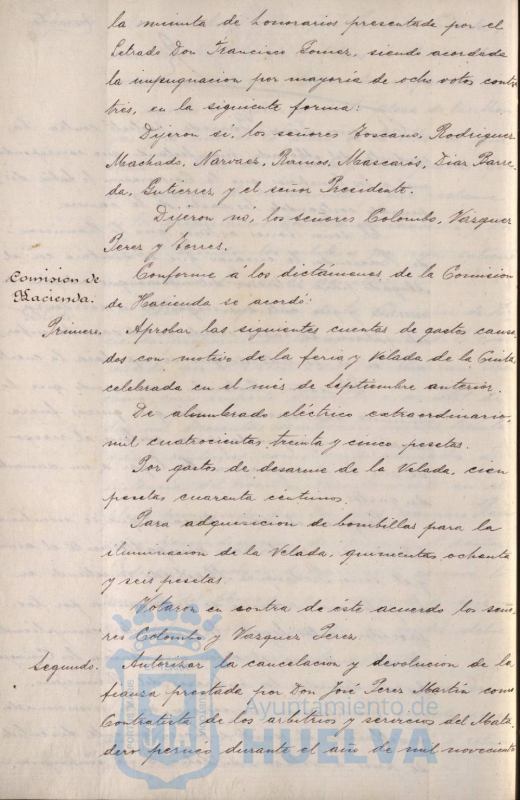 la minuta de honorarios presentada por el
Letrado Don Francisco Gomez, siendo acordada
la impugnacion por mayoría de ocho votos contra
tres, en la siguiente forma:
Dijeron sí, los señores Toscano, Rodriguez
Machado, Narvaez, Ramos, Mascarós, Diaz Barre-
da, Gutierrez y el señor Presidente.
Dijeron nó, los señores Colombo, Vazquez
Perez y Torres.
Comision de
Hacienda.
Conforme á los dictámenes de la Comision
de Hacienda se acordó:
Primero. Aprobar las siguientes cuentas de gastos causa-
dos con motivo de la feria y Velada de la Cinta
celebrada en el mes de Septiembre anterior.
De alumbrado eléctrico extraordinario,
mil cuatrocientas treinta y cinco pesetas.
Por gastos de desarme de la Velada, cien
pesetas cuarenta centimos.
Para adquisicion de bombillas para la
iluminacion de la Velada, quinientas ochenta
y seis pesetas.
Votaron en contra de éste acuerdo los seño-
res Colombo y Vazquez Perez.
Segundo. Autorizar la cancelacion y devolucion de la
fianza prestada por Don José Perez Martin como
Contratista de los arbitrios y servicios del Mata-
dero durante el año de mil novecientos
Ayuntamiento de
HUELVA